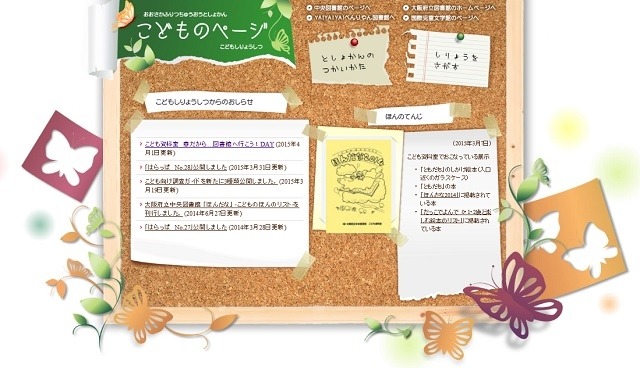 おおさかふりつちゅうおうとしょかん
こどものページ
こどもしりょうしつ
中央図書館のページへ
大阪府立図書館のホームページへ
YA!YA!YA!べんりやん図書館へ
国際児童文学館のページへ
としょかんの
つかいかた
しりょうを
さがす
こどもしりょうしつからのおしらせ
こども資料室 春だから 図書館へ行こう!DAY (2015年4
月1日更新)
「はらっぱ No.28」公開しました (2015年3月31日更新)
こども向け調査ガイドを新たに3種類公開しました。 (2015年3
月19日更新)
大阪府立中央図書館 「ほんだな」:こどものほんのリストを
刊行しました。 (2014年6月27日更新)
「はらっぱ No.27」公開しました (2014年3月28日更新)
ほんのてんじ
(2015年3月1日)
こども資料室でおこなっている展示
・「ともだち」のしかけ絵本(入口
近くのガラスケース)
・「ともだち」の本
・「ほんだな2014」に掲載されて
いる本
・「だっこでよんで 0・1・2歳と楽し
む絵本のリスト」に掲載さ
れている本